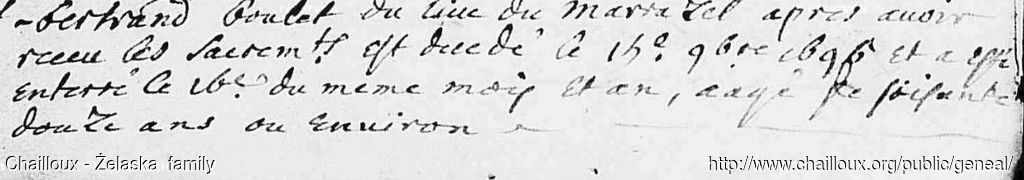 -bertrand boulet du lieu du marrazel apres avoir
receu les sacremts est decedé le 15e 9bre 1695 et a esté
enterré le 16e du meme mois et an, aagé de soisante
douze ans ou environ
Chailloux - Želaska family
http://www.chailloux.org/public/geneal/